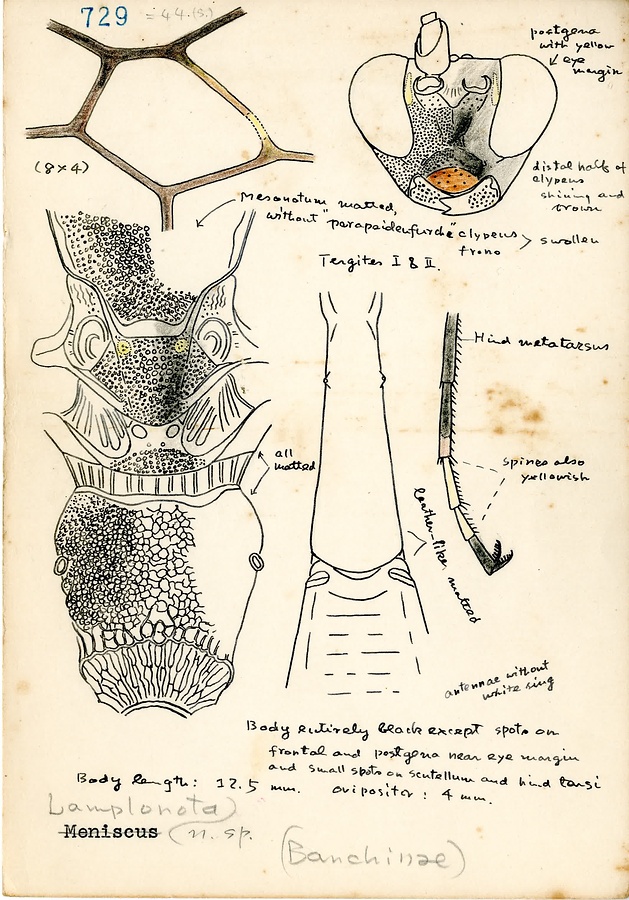 729 = 44.(s.)
postgena
with yellow
eye
margin
(8×4)
distal half of
clypeus
shining and
brown
Mesonotum matted,
without "parapsidenfurche"
clypeus
frons
> swollen
Tergites I & II.
Hind metatarsus
all
matted
spines also
yellowish
leather-like matted
antennae without
white ring
Body entirely black except spots on
frontal and postgena near eye margin
and small spots on scutellum and hind tarsi
Body length: 12.5 mm. ovipositor: 4 mm.
Lamplonota)
Meniscus (n. sp.
(Banchinae)